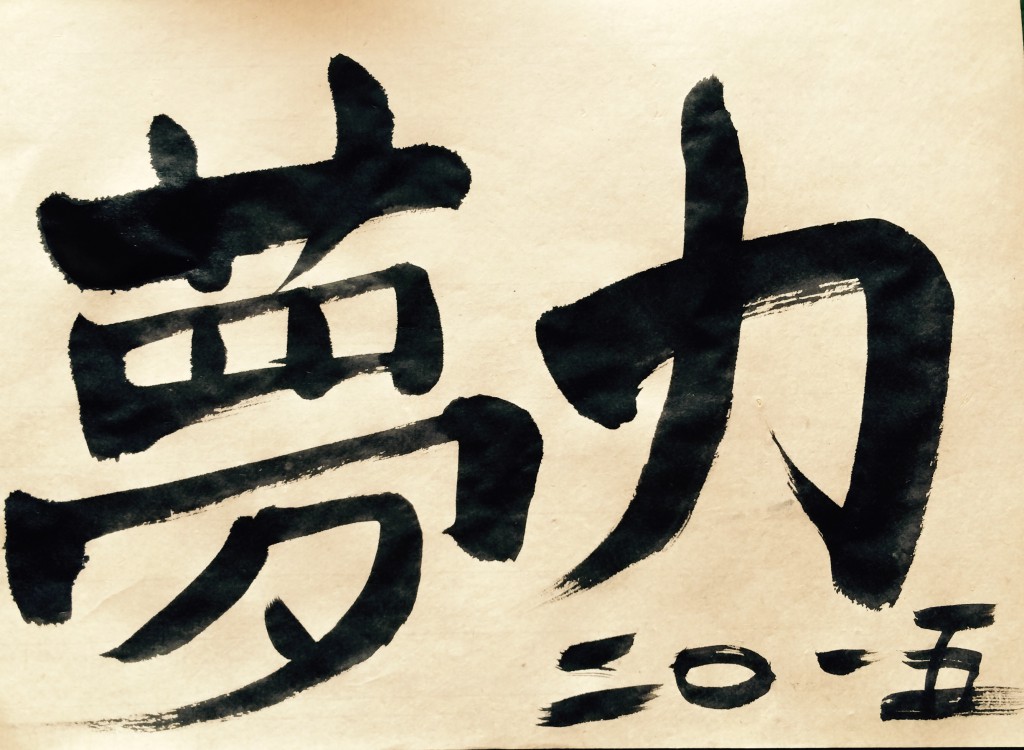 夢力
二〇一五